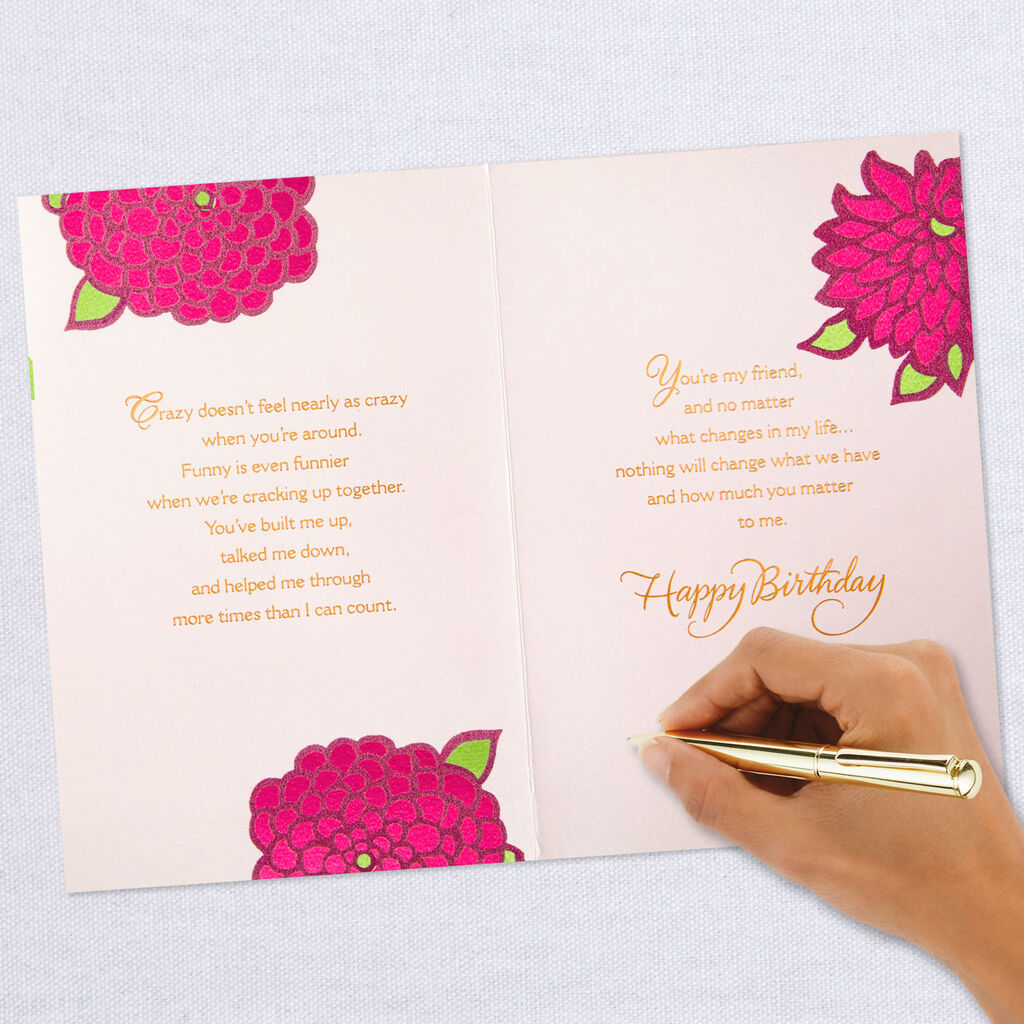 Crazy doesn't feel nearly as crazy
when you're around.
Funny is even funnier
when we're cracking up together.
You've built me up,
talked me down,
and helped me through
more times than I can count.
You're my friend,
and no matter
what changes in my life...
nothing will change what we have
and how much you matter
to me.
Happy Birthday